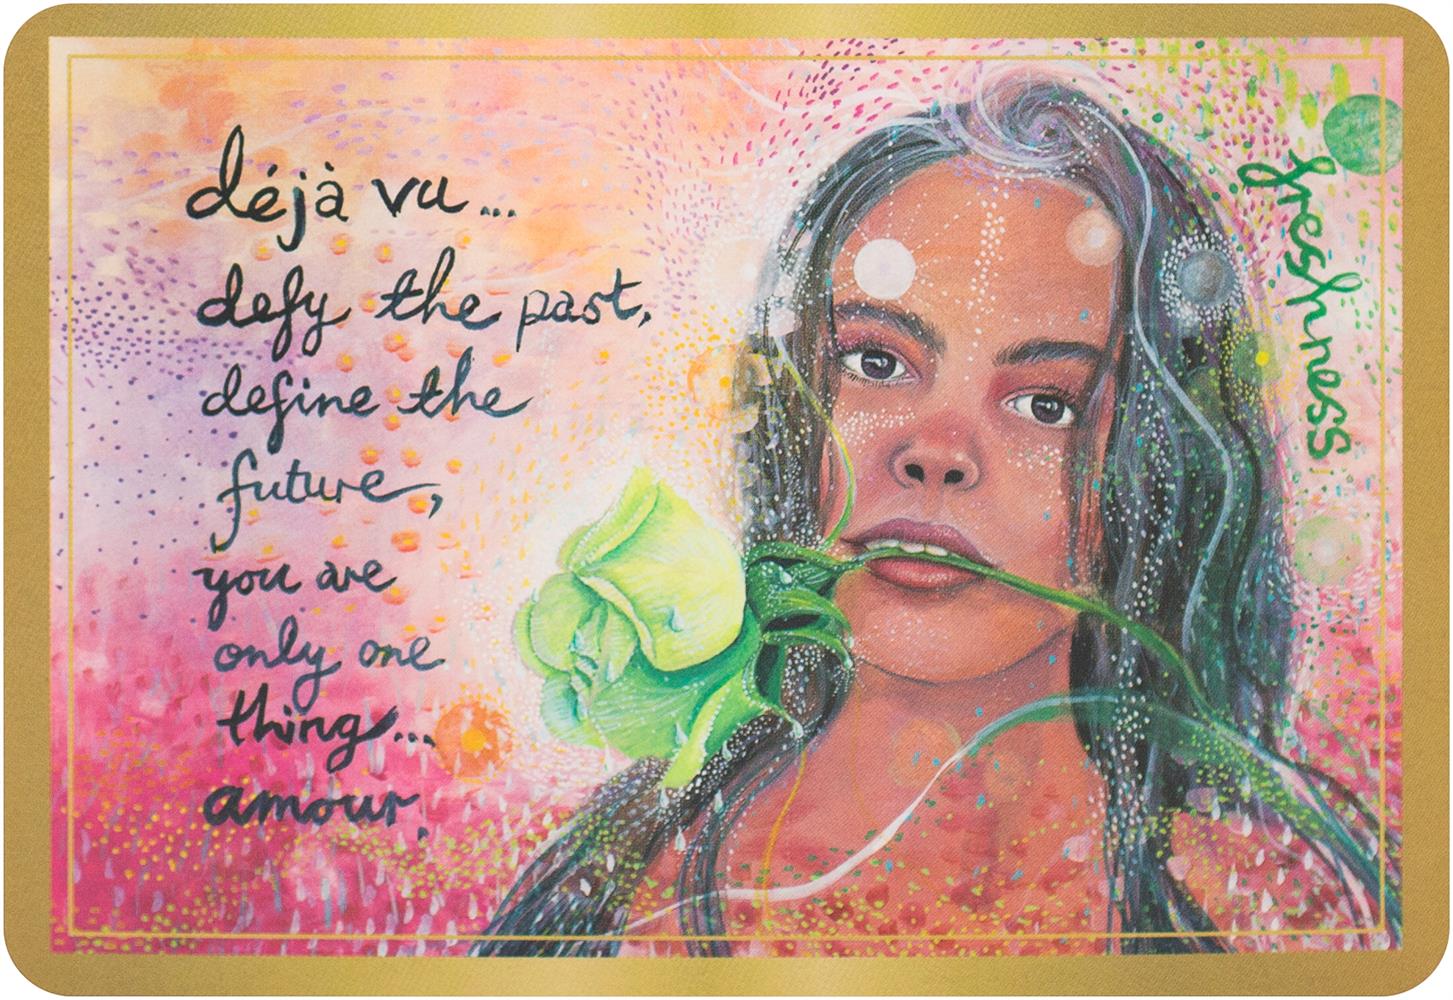 déjà vu...
defy the past,
define the
future,
you are
only one
thing...
amour.
freshness